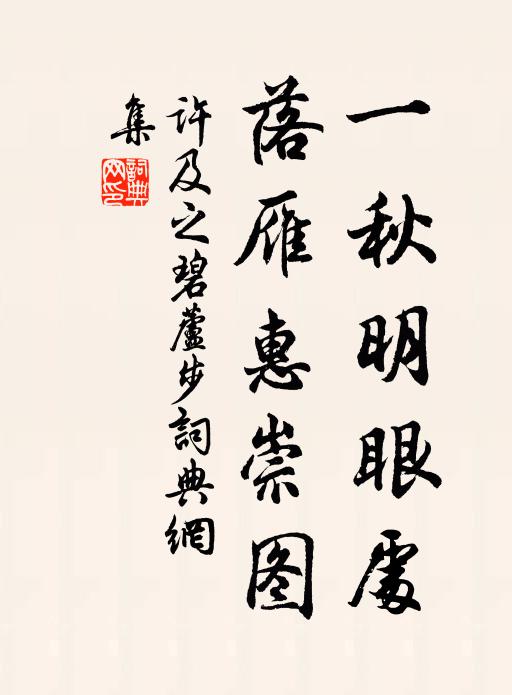 一秋明眼處
落雁惠崇图
許及之碧蘆步詞典網
集
詞典
网印